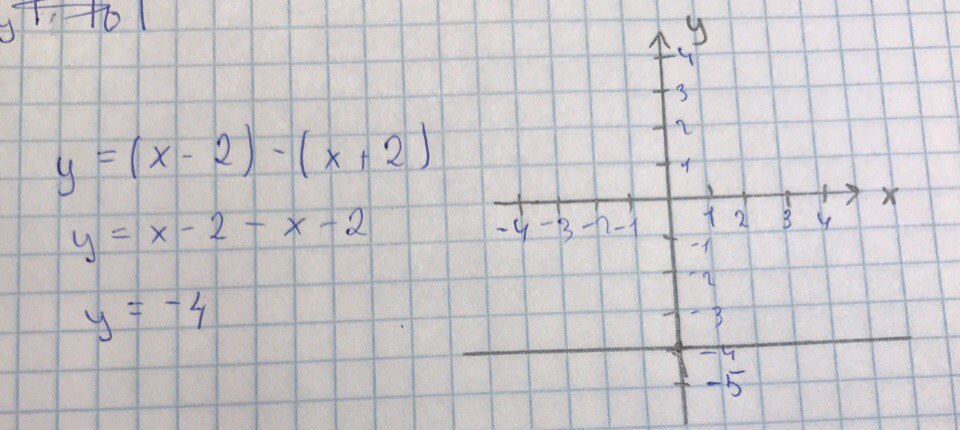 y = (x - 2) - (x + 2)
y = x - 2 - x - 2
y = -4
y
4
3
2
1
-4 -3 -2 -1 1 2 3 4 x
-1
-2
-3
-4
-5